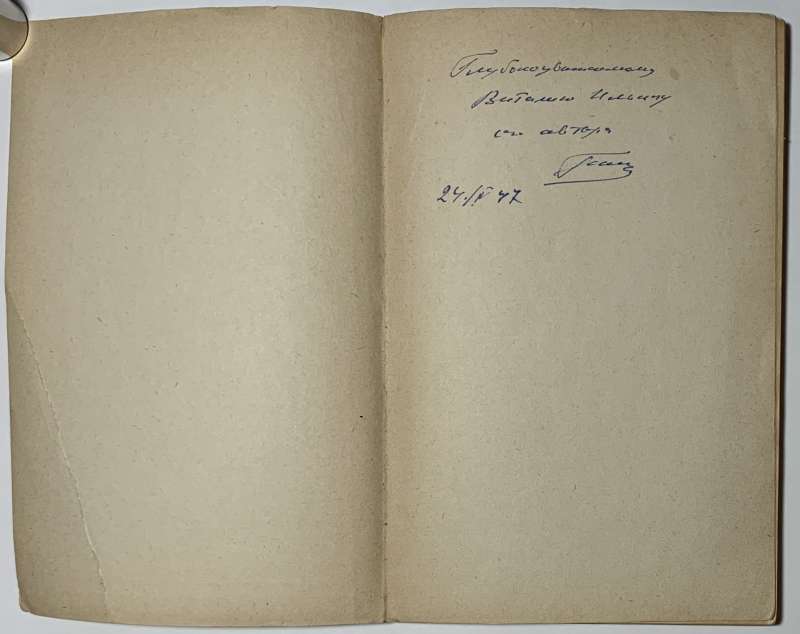 Глубокоуважаемому
Виталию Ильичу
от автора
24/IV 47